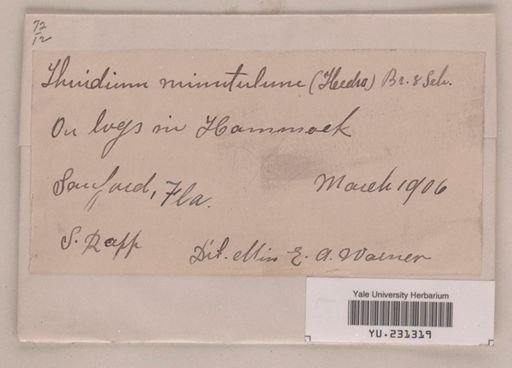 72
12
Thuidium minutulum (Hedw) Br. & Sch.
On logs in Hammock
Sanford, Fla. March 1906
S. Rapp Det. Miss E. A. Warner
Yale University Herbarium
YU.231319